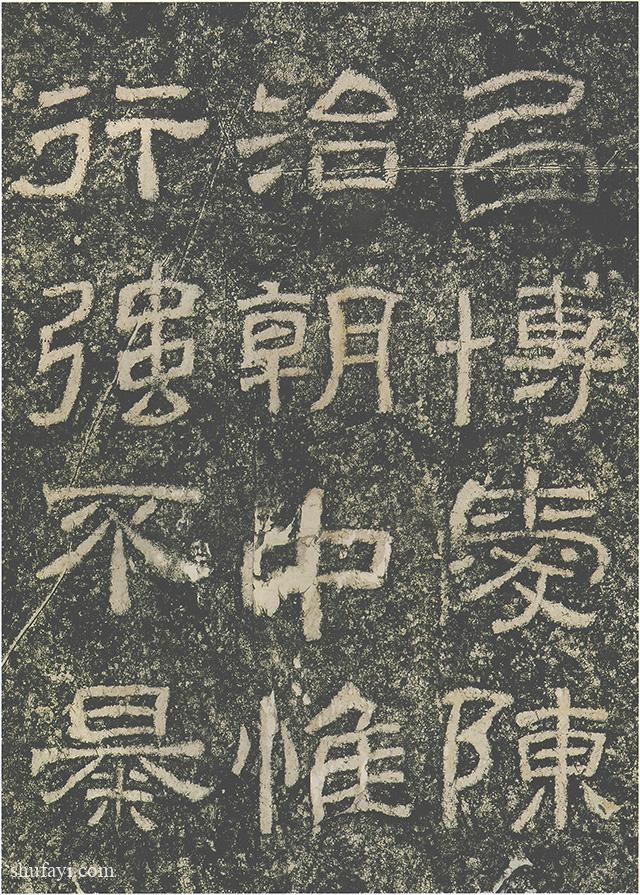 㠯博愛陳
治朝中惟
行強不暴
shufayi.com